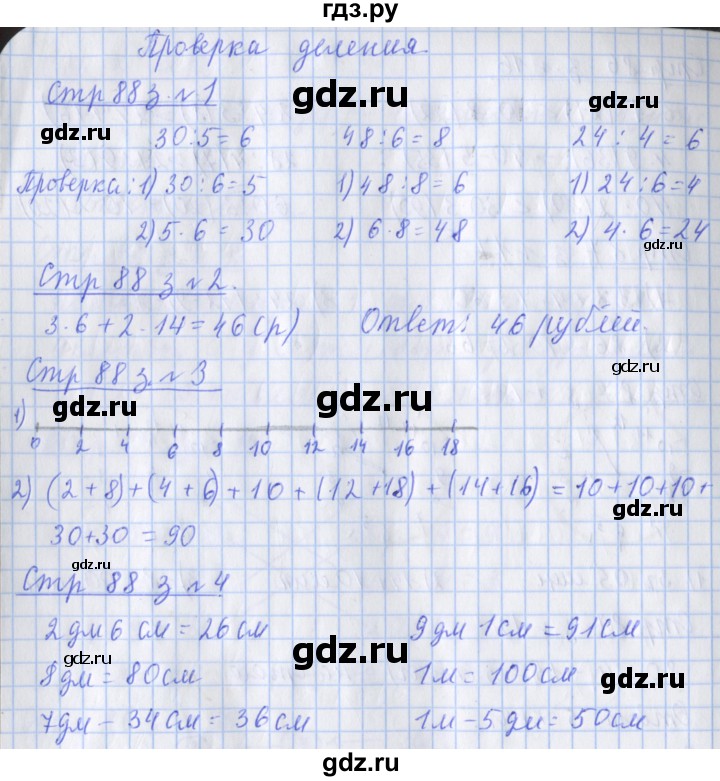 гдз.ру
Проверка деления
Стр 88 з. №1
gdz.ru
gdz.ru
30:5=6 48:6=8 24:4=6
Проверка: 1) 30:6=5 1) 48:8=6 1) 24:6=4
2) 5·6=30 2) 6·8=48 2) 4·6=24
gdz.ru
Стр 88 з №2.
gdz.ru
3·6+2·14=46(р) Ответ: 46 рублей.
Стр 88 з. №3
gdz.ru
gdz.ru
gdz.ru
1)
0 2 4 6 8 10 12 14 16 18
2) (2+8)+(4+6)+10+(12+18)+(14+16)=10+10+10+
gdz.ru
30+30=90
gdz.ru
Стр 88 з №4
2дм 6 см=26см 9дм 1см=91см
gdz.ru
gdz.ru
8дм=80см 1м=100см
gdz.ru
7дм-34см=36см 1м-5дм=50см
gdz.ru
gdz.ru